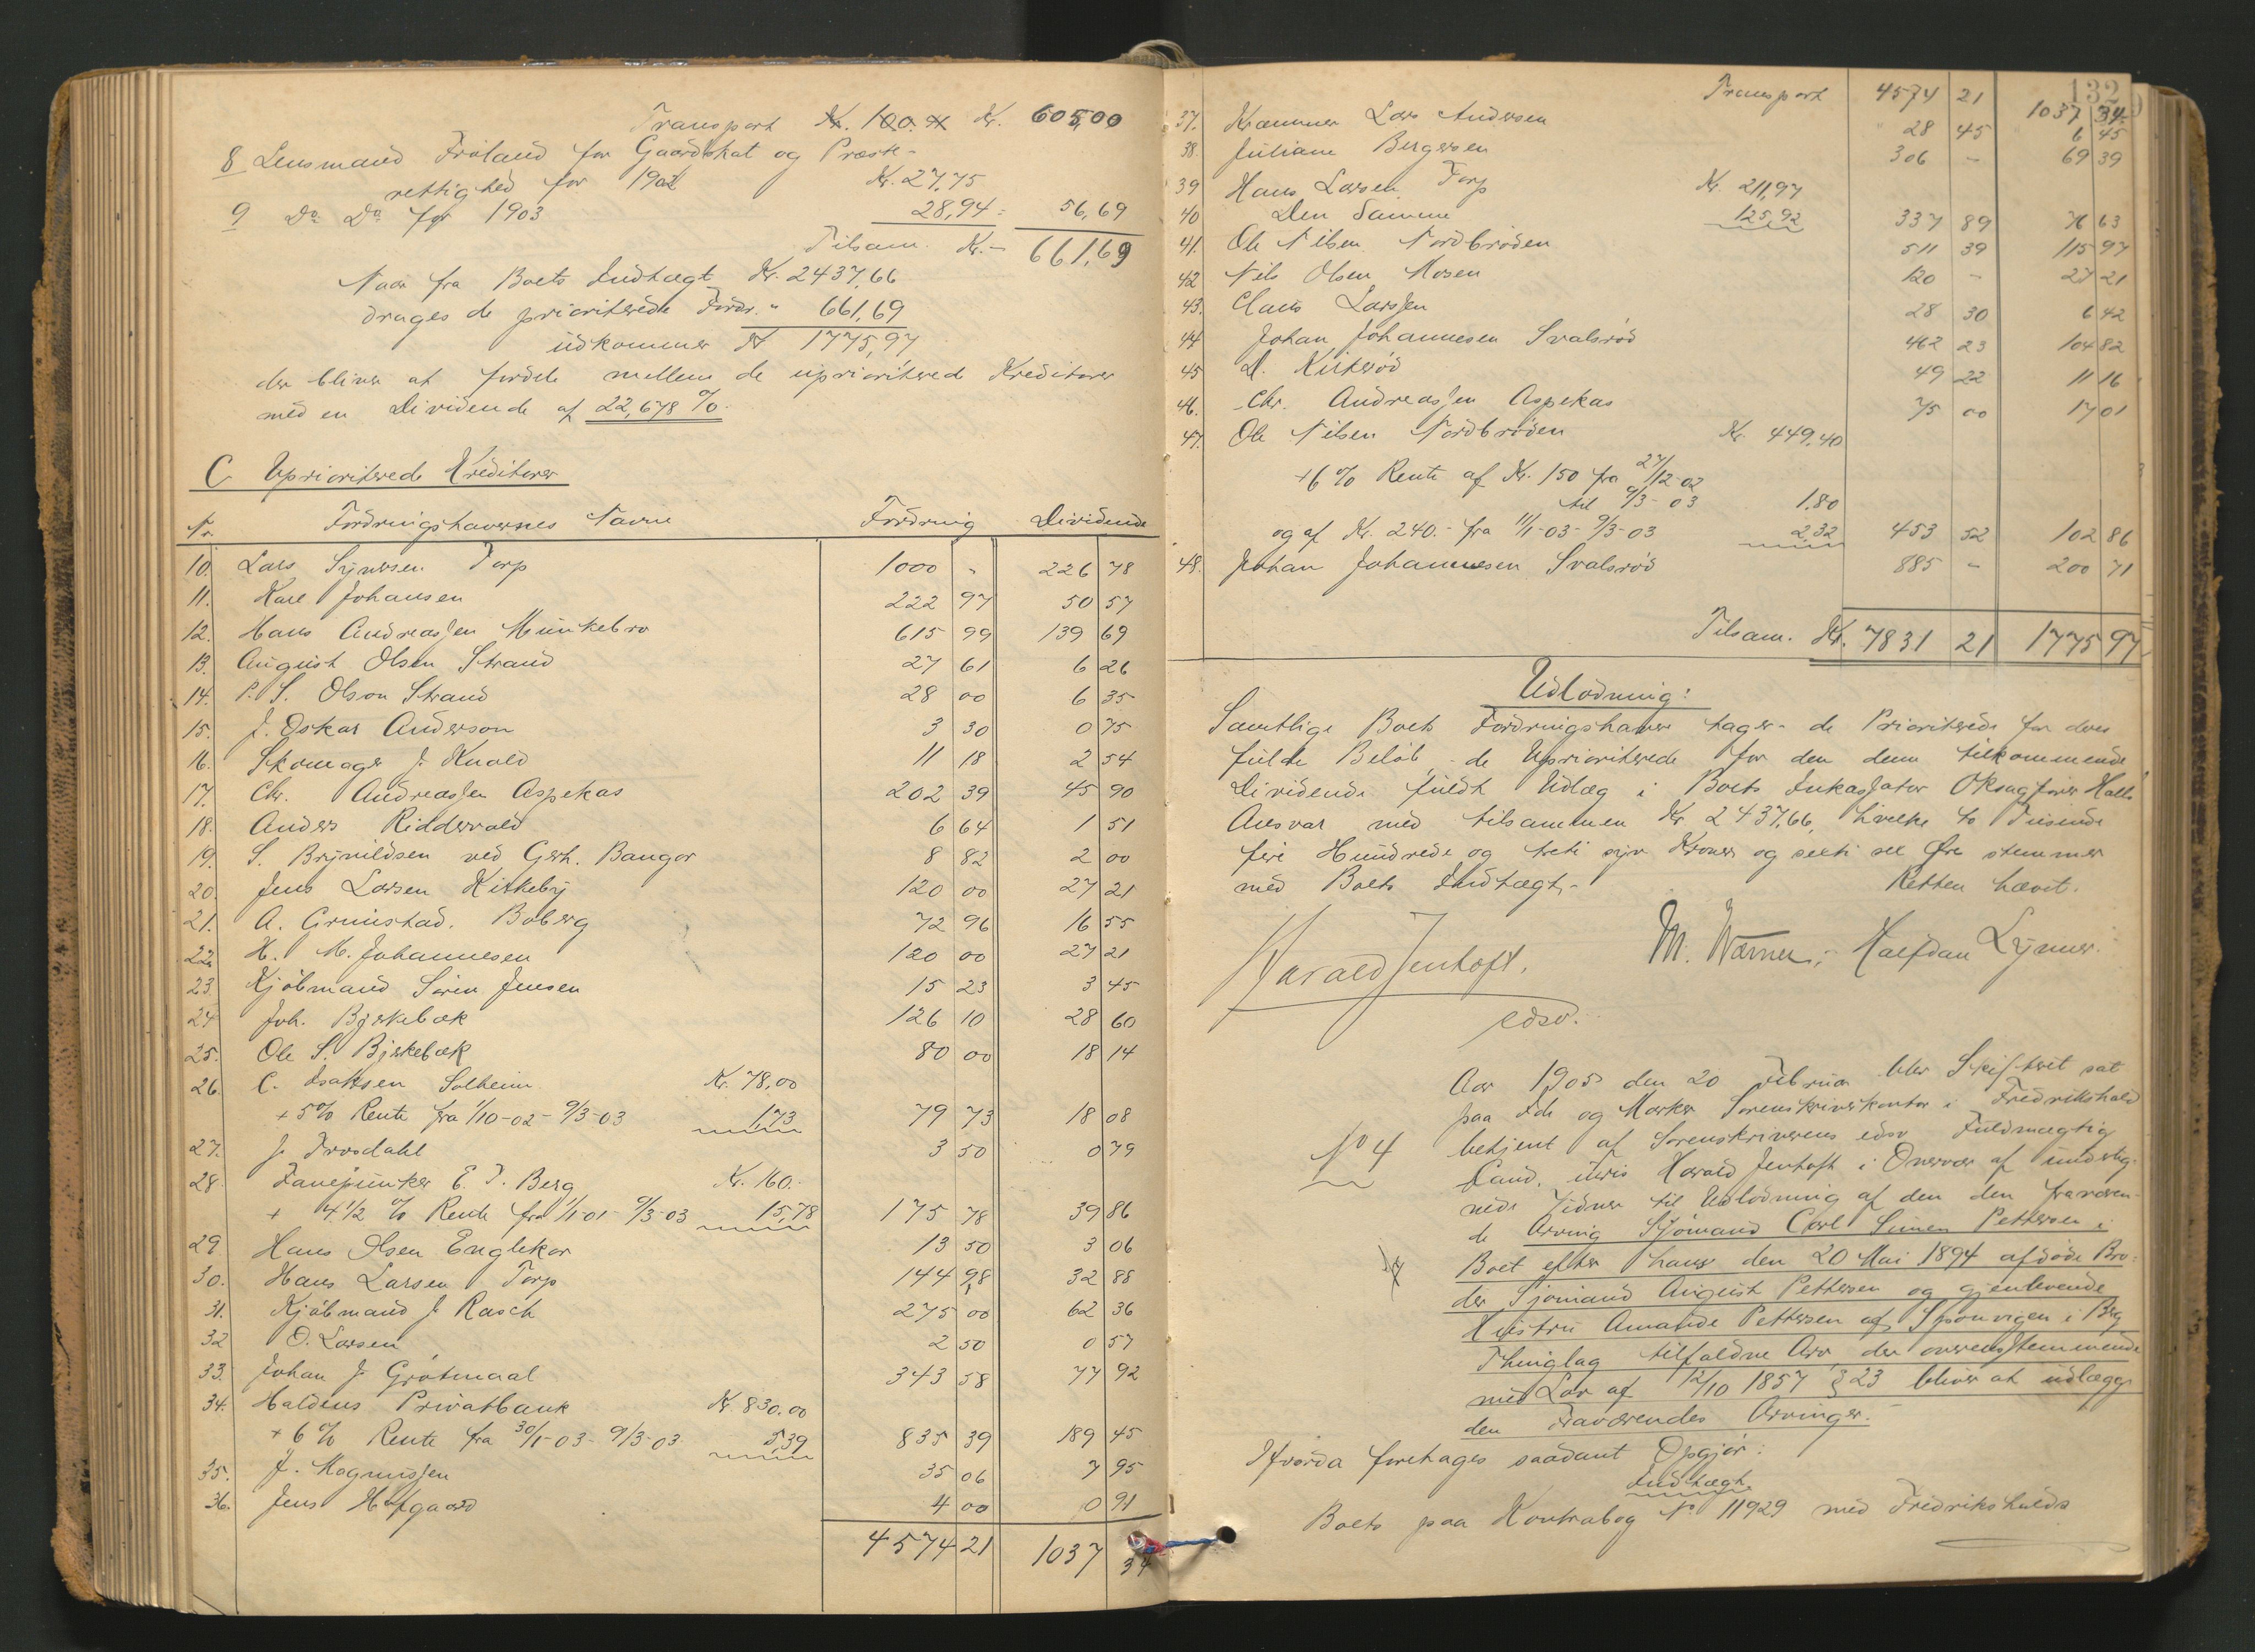 Transport Kr. 100.00 Kr. 605,00
8 Lensmand Fröland for Gaardskat og Præste-
rettighed for 1902 Kr. 27,75
9 Do Do for 1903 28,94 = 56,69
Tilsam. Kr.- 661,69
Naar fra Boets Indtægt Kr. 2437,66
drages de prioriterede Fordr. " 661,69
udkommer 1775,97
der bliver at fordele mellem de uprioriterede Kreditorer
med en Dividende af 22,678 %.
C Uprioriterede Kreditorer
Nr. Fordringshavernes Navne Fordring Dividende
10. Lars Synersen Torp 1000 - 226 78
11. Karl Johansen 222 97 50 57
12. Hans Andreassen Munkebro 615 99 139 69
13. August Olsen Strand 27 61 6 26
14. P. S. Olson Strand 28 00 6 35
15. J. Oskar Anderson 3 30 0 75
16. Skomager J. Knold 11 18 2 54
17. Chr. Andreassen Aspekas 202 39 45 90
18. Anders Riddervold 6 64 1 51
19. S. Brynildsen ved Gerh. Bangor 8 82 2 00
20. Jens Larsen Kirkeby 120 00 27 21
21. A. Grimstad. Boberg 72 96 16 55
22. H. M. Johannesen 120 00 27 21
23. Kjöbmand Sören Jensen 15 23 3 45
24 Joh. Bjerkebæk 126 10 28 60
25. Ole S. Bjerkebæk 80 00 18 14
26. C. Isaksen Solheim Kr. 78,00
+ 5% Rente fra 1/10-02 - 9/3-03 1,73 79 73 18 08
27. J. Trosdahl 3 50 0 79
28. Fanejunker E. T. Berg Kr. 160.-
+ 4 1/2 % Rente fra 1/1-01 9/3-03 15,78 175 78 39 86
29 Hans Olsen Englekor 13 50 3 06
30. Hans Larsen Torp 144 98 32 88
31. Kjöbmand J. Rasch 275 00 62 36
32 O. Larsen 2 50 0 57
33. Johan J. Grötmaal 343 58 77 92
34. Haldens Privatbank Kr. 830.00
+ 6 % Rente fra 30/1-03 - 9/3-03 5,39 835 39 189 45
35. J. Magnussen 35 06 7 95
36. Jens Hofgaard 4 00 0 91
4574 21 1037 34
132
Transport 4574 21 1037 34
37. Kræmmer Lars Andersen 28 45 6 45
38. Juliane Bergersen 306 - 69 39
39 Hans Larsen Torp Kr. 211,97
40 Den Samme 125,92 337 89 76 63
41. Ole Nilsen Nordbröden 511 39 115 97
42 Nils Olsen Mosen 120 - 27 21
43. Claus Larssen 28 30 6 42
44 Johan Johannesen Svalsröd 462 23 104 82
45 A. Kisteröd 49 22 11 16
46. Chr. Andreassen Aspekas 75 00 17 01
47. Ole Nilsen Nordbröden Kr. 449.40
+6 % Rente af Kr. 150 fra 27/12-02
til 9/3-03 1.80
og af Kr. 240.- fra 11/1-03 - 9/3-03 2,32 453 52 102 86
48. Johan Johannesen Svalsröd 885 - 200 71
Tilsam. Kr. 7831 21 1775 97
Udlodning:
Samtlige Boets Fordringshaver tager - de Prioriterede for deres
fulde Belöb, - de Uprioriterede for den dem tilkommende
Dividende fuldt Udlæg i Boets Inkassator Oksagförer Halls
Ansvar med tilsammen Kr 2437,66, hvilke to Tusinde
fire Hundrede og treti syv Kroner og sexti sex Øre stemmer
med Boets Indtægt.-
Retten hævet.
Harald Jenhoft. M. Warner. Halfdan Lynner.
edsv.
Aar 1905 den 20 Februar blev Skifteret sat
paa Idd og Marker Sorenskriverkontor i Fredrikshald
No 4 betjent af Sorenskriverens edsv Fuldmægtig
Cand. juris Harald Jenhoft i Overvær af underteg-
nede Vidner til Udlodning af den den fraværen-
de Arving Sjömand Carl Simen Pettersen i
Boet efter hans den 20 Mai 1894 afdöde Bro-
der Sjömand August Pettersen og gjenlevende
Hustru Amanda Pettersen af Sponvigen i Berg
Thinglag tilfaldne Arv der overensstemmende
med Lov af 12/10 1857 § 23 bliver at udlægge
den Fraværendes Arvinger.-
Hvorda foretages saadant Opgjör:
Indtægt
Boets paa Kontrabog No 11929 med Fredrikshalds